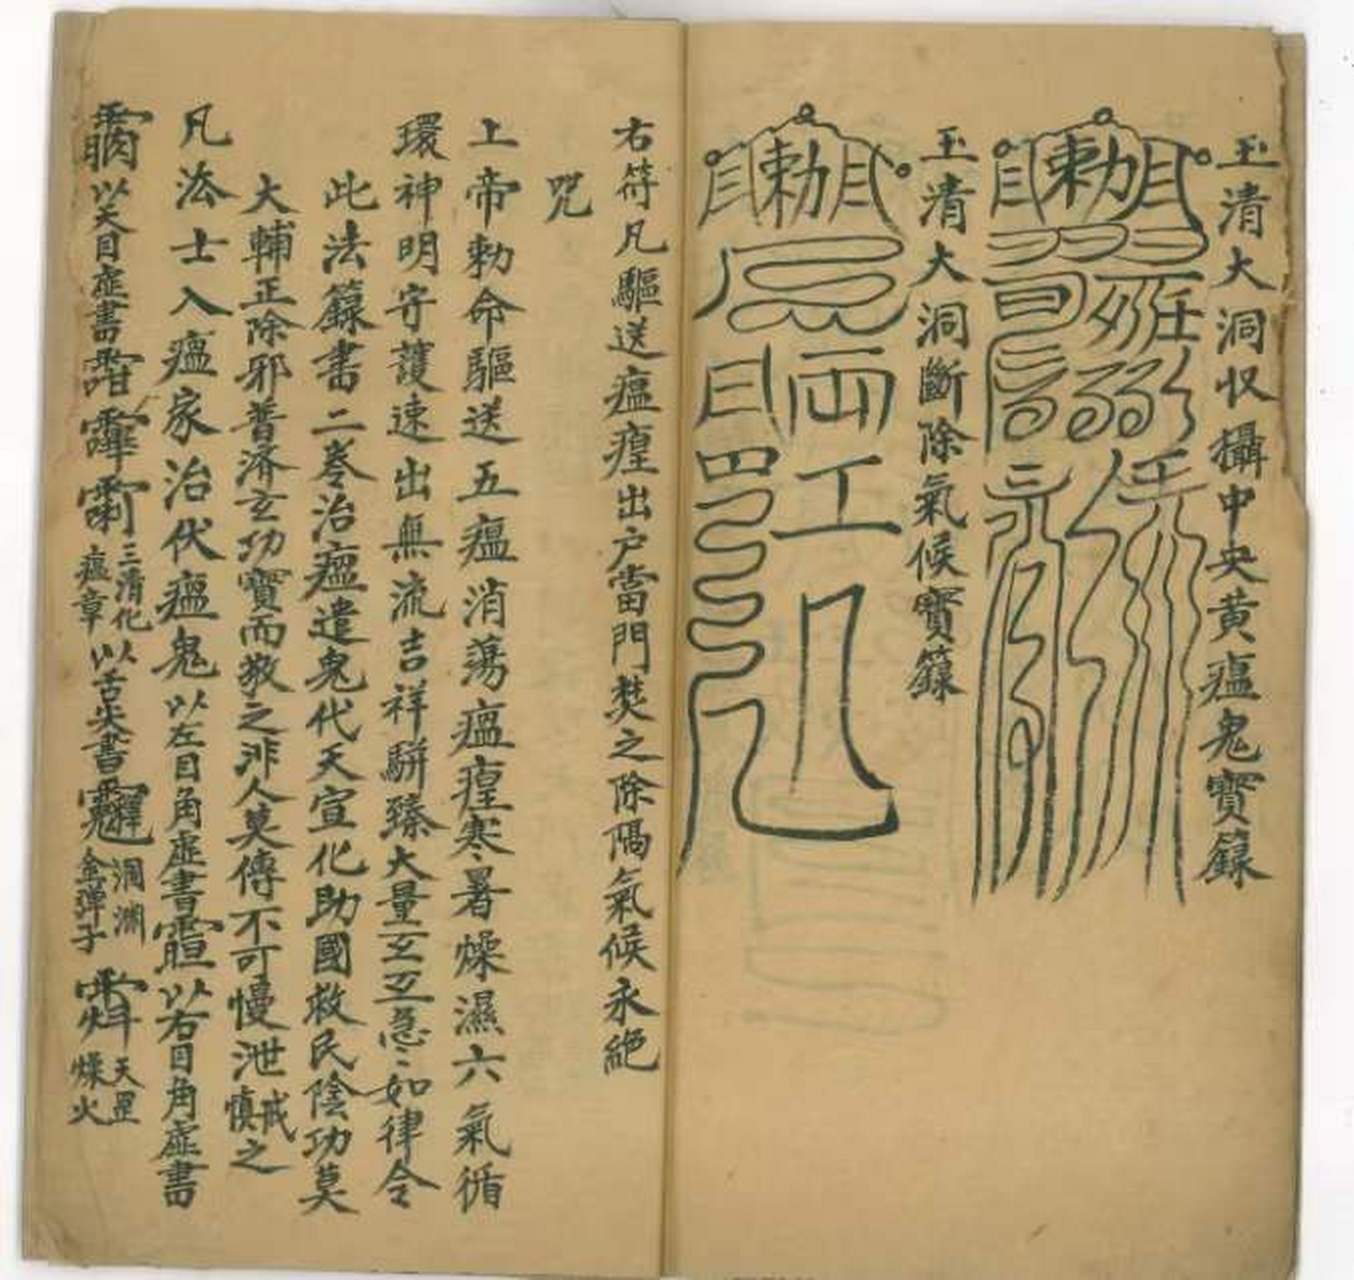 玉清大洞収攝中央黃瘟鬼寳籙
勅
玉清大洞斷除氣候寳籙
勅
右符凡驅送瘟瘟出户當門焚之除隔氣候永絕
咒
上帝勅命驅送五瘟消蕩瘟㾮寒暑燥濕六氣循
環神明守護速出無流吉祥駢臻大量玄玄急〻如律令
此法籙書二卷治瘟遣鬼代天宣化助國救民陰功莫
大輔正除邪普济玄功寳而敬之非人莫傳不可慢泄戒慎之
凡法士入瘟家治伏瘟鬼以左目角虛書以右目角虛書
以天目虛書三清化瘟章以舌尖書洞淵金彈子天罡燥火